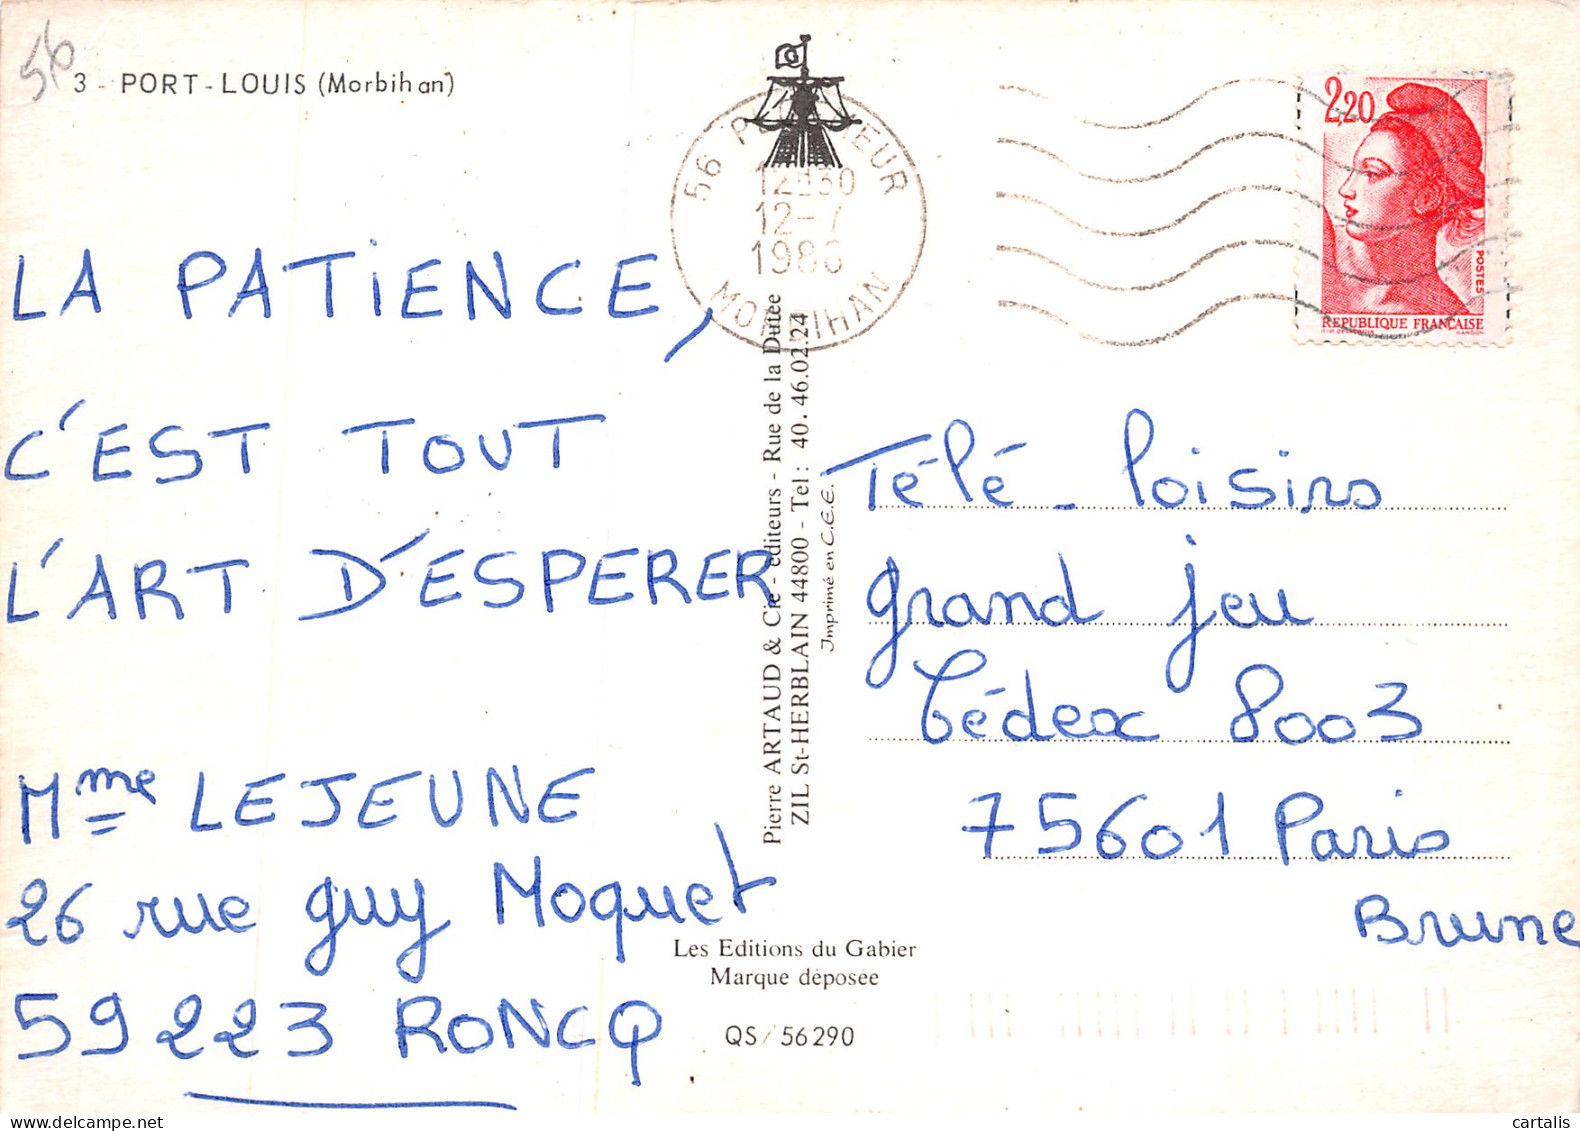 56
3 - PORT-LOUIS (Morbihan)
12-7
1986
MORBIHAN
2,20
POSTES
REPUBLIQUE FRANÇAISE
LA PATiENCE,
C'EST TOUT
L'ART D'ESPERER
Mme LEJEUNE
26 rue guy Moquet
59223 RONCQ
Pierre ARTAUD & Cie - éditeurs - Rue de la Dutée
ZIL St-HERBLAIN 44800 - Tel : 40.46.02.24
Imprimé en C.E.E.
Télé-loisirs
grand jeu
Cédex 8003
75601 Paris
Brune
Les Editions du Gabier
Marque déposée
QS/56290
cartalis